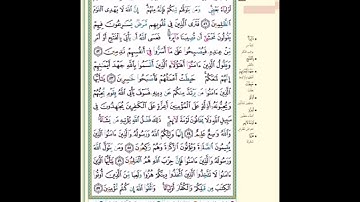 أَوْلِيَآءُ بَعْضٍ وَمَن يَتَوَلَّهُم مِّنكُمْ فَإِنَّهُۥ مِنْهُمْ إِنَّ ٱللَّهَ لَا يَهْدِى ٱلْقَوْمَ
ٱلظَّٰلِمِينَ ٥١ فَتَرَى ٱلَّذِينَ فِى قُلُوبِهِم مَّرَضٌ يُسَٰرِعُونَ فِيهِمْ
يَقُولُونَ نَخْشَىٰٓ أَن تُصِيبَنَا دَآئِرَةٌ فَعَسَى ٱللَّهُ أَن يَأْتِىَ بِٱلْفَتْحِ أَوْ أَمْرٍ
مِّنْ عِندِهِۦ فَيُصْبِحُوا۟ عَلَىٰ مَآ أَسَرُّوا۟ فِىٓ أَنفُسِهِمْ نَٰدِمِينَ ٥٢
وَيَقُولُ ٱلَّذِينَ ءَامَنُوٓا۟ أَهَٰٓؤُلَآءِ ٱلَّذِينَ أَقْسَمُوا۟ بِٱللَّهِ جَهْدَ أَيْمَٰنِهِمْ
إِنَّهُمْ لَمَعَكُمْ حَبِطَتْ أَعْمَٰلُهُمْ فَأَصْبَحُوا۟ خَٰسِرِينَ ٥٣ يَٰٓأَيُّهَا
ٱلَّذِينَ ءَامَنُوا۟ مَن يَرْتَدَّ مِنكُمْ عَن دِينِهِۦ فَسَوْفَ يَأْتِى ٱللَّهُ بِقَوْمٍ يُحِبُّهُمْ
وَيُحِبُّونَهُۥٓ أَذِلَّةٍ عَلَى ٱلْمُؤْمِنِينَ أَعِزَّةٍ عَلَى ٱلْكَٰفِرِينَ يُجَٰهِدُونَ فِى
سَبِيلِ ٱللَّهِ وَلَا يَخَافُونَ لَوْمَةَ لَآئِمٍ ذَٰلِكَ فَضْلُ ٱللَّهِ يُؤْتِيهِ مَن يَشَآءُ
وَٱللَّهُ وَٰسِعٌ عَلِيمٌ ٥٤ إِنَّمَا وَلِيُّكُمُ ٱللَّهُ وَرَسُولُهُۥ وَٱلَّذِينَ ءَامَنُوا۟ ٱلَّذِينَ
يُقِيمُونَ ٱلصَّلَوٰةَ وَيُؤْتُونَ ٱلزَّكَوٰةَ وَهُمْ رَٰكِعُونَ ٥٥ وَمَن يَتَوَلَّ ٱللَّهَ
وَرَسُولَهُۥ وَٱلَّذِينَ ءَامَنُوا۟ فَإِنَّ حِزْبَ ٱللَّهِ هُمُ ٱلْغَٰلِبُونَ ٥٦ يَٰٓأَيُّهَا
ٱلَّذِينَ ءَامَنُوا۟ لَا تَتَّخِذُوا۟ ٱلَّذِينَ ٱتَّخَذُوا۟ دِينَكُمْ هُزُوًا وَلَعِبًا مِّنَ ٱلَّذِينَ أُوتُوا۟
ٱلْكِتَٰبَ مِن قَبْلِكُمْ وَٱلْكُفَّارَ أَوْلِيَآءَ وَٱتَّقُوا۟ ٱللَّهَ إِن كُنتُم مُّؤْمِنِينَ ٥٧